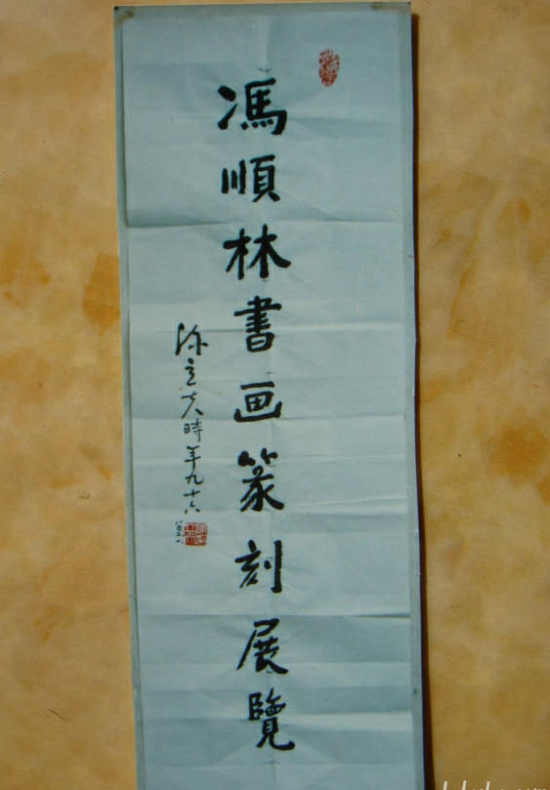 馮順林書画篆刻展覽
陳立夫時年九十六